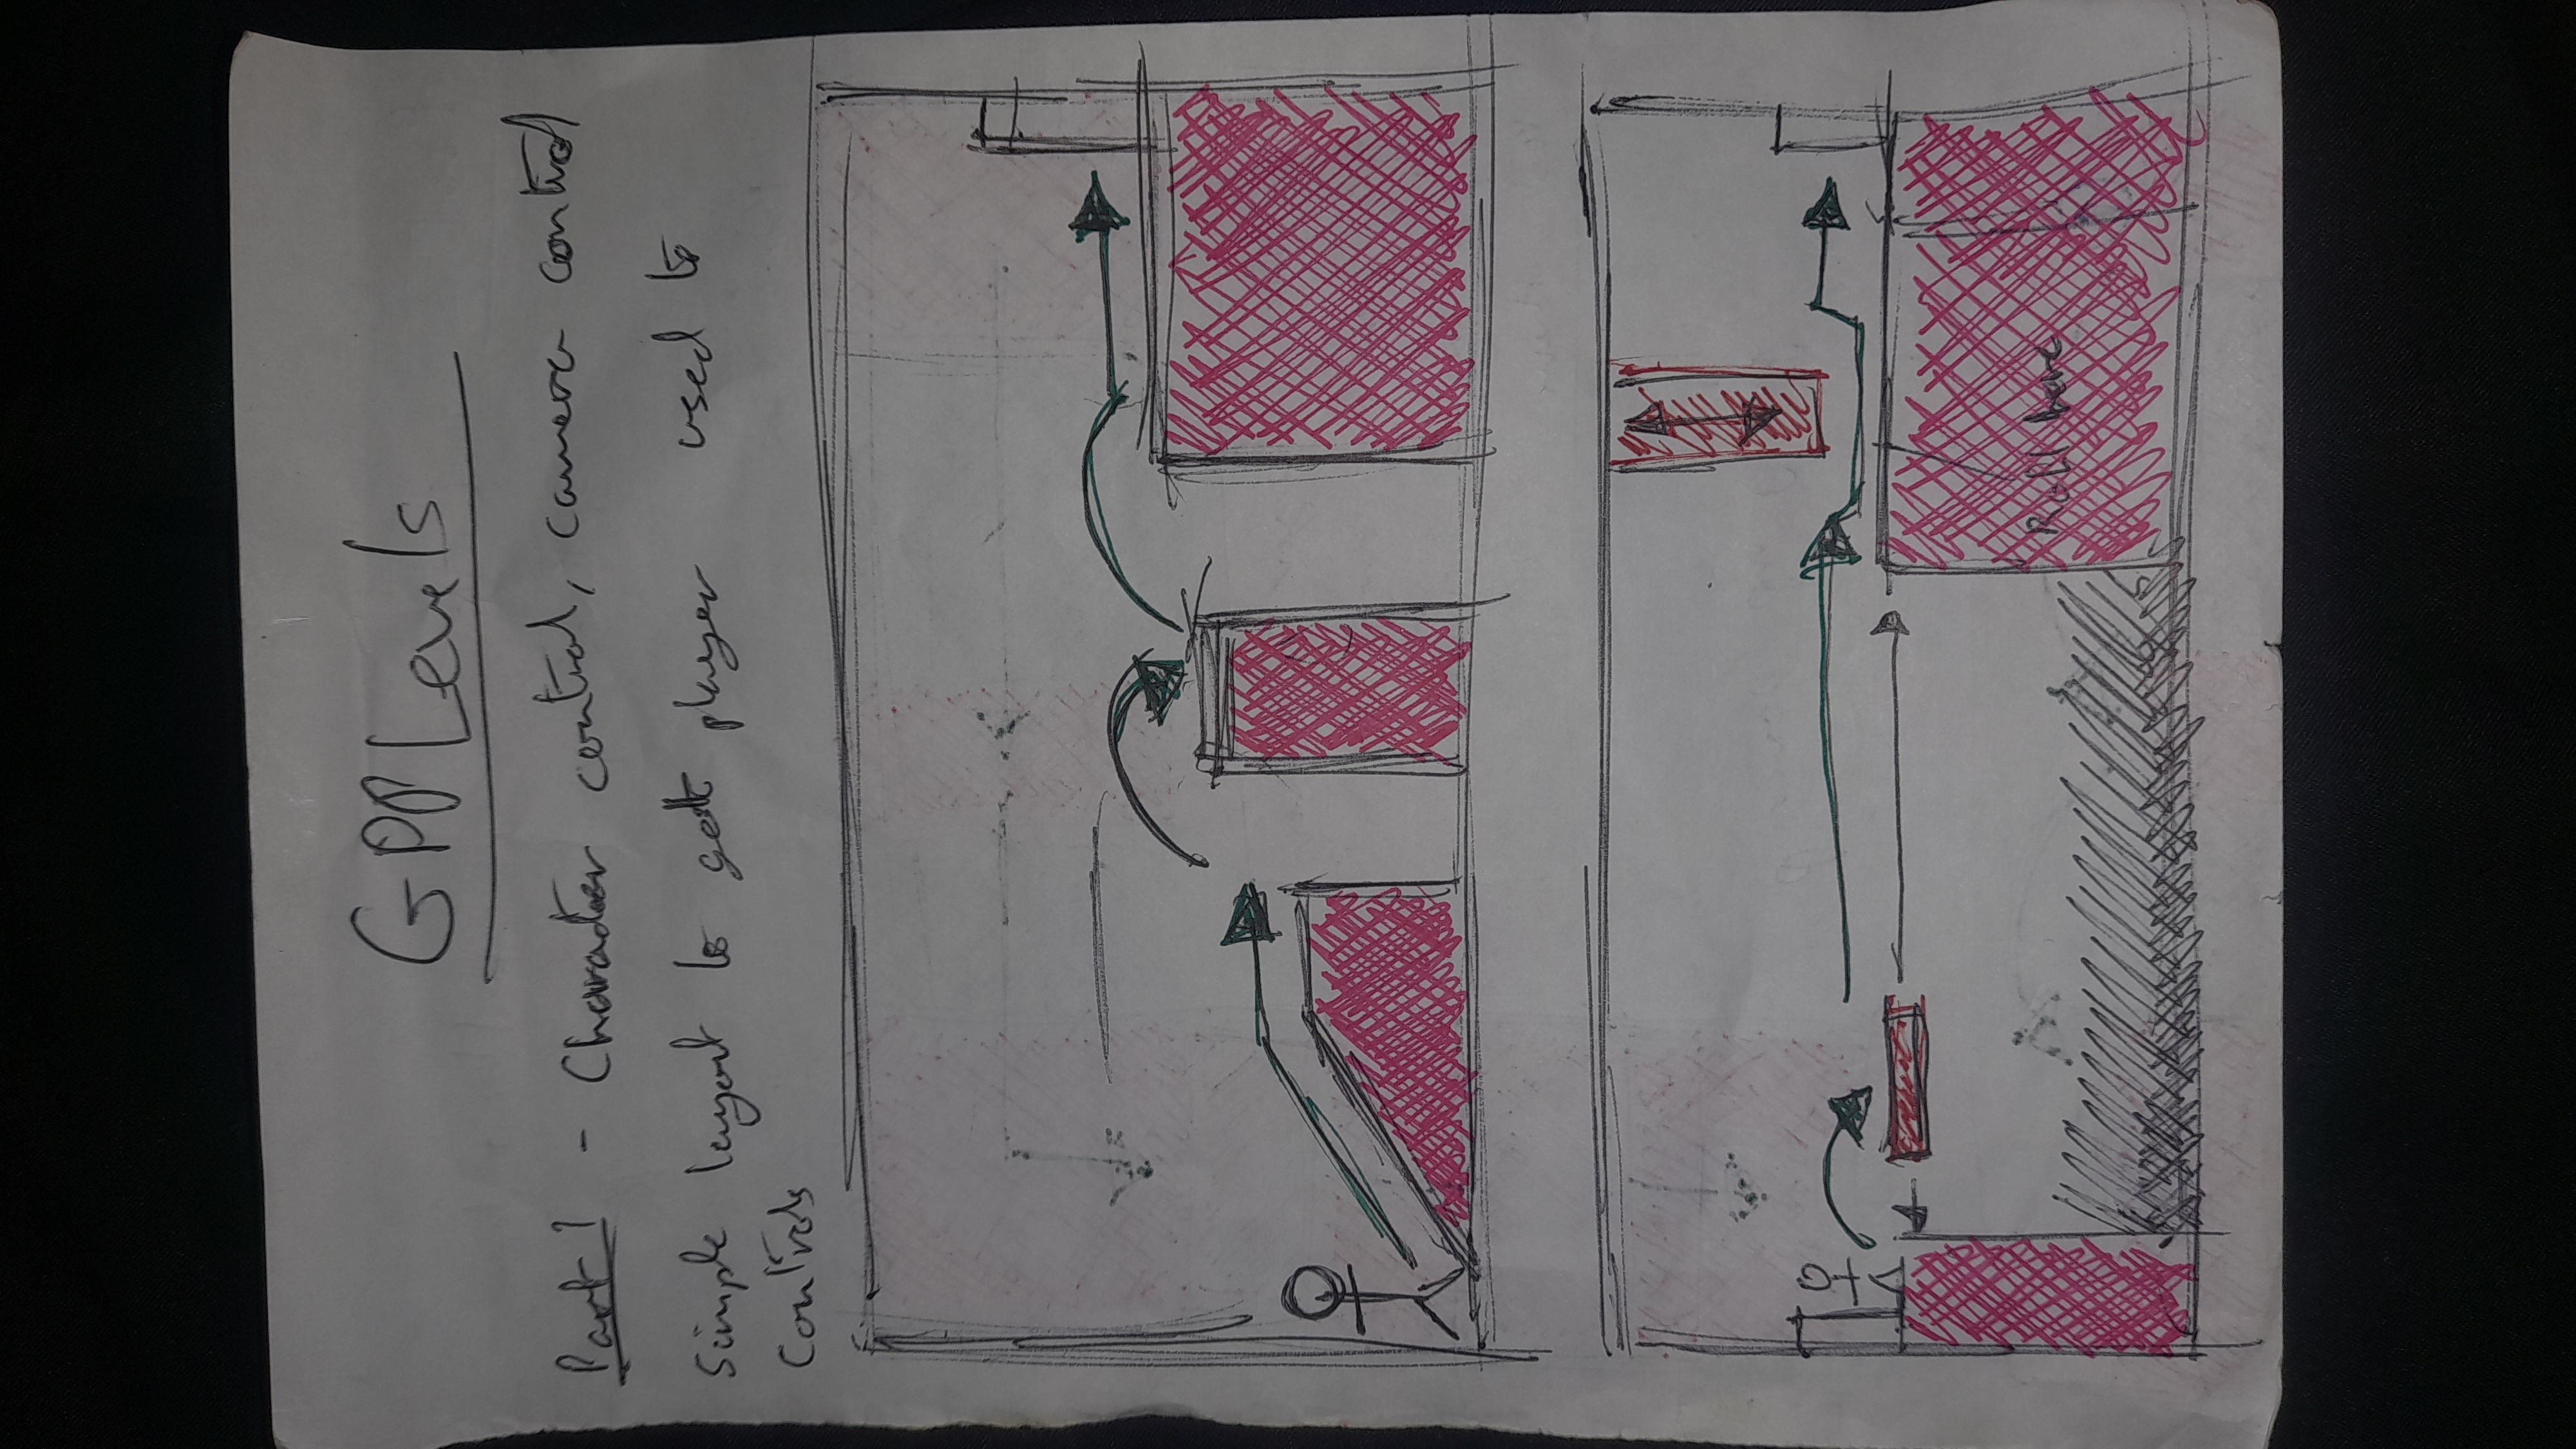 GPP Levels
Part 1 - Character control, camera control
Simple layout to get player used to
controls
Roll here